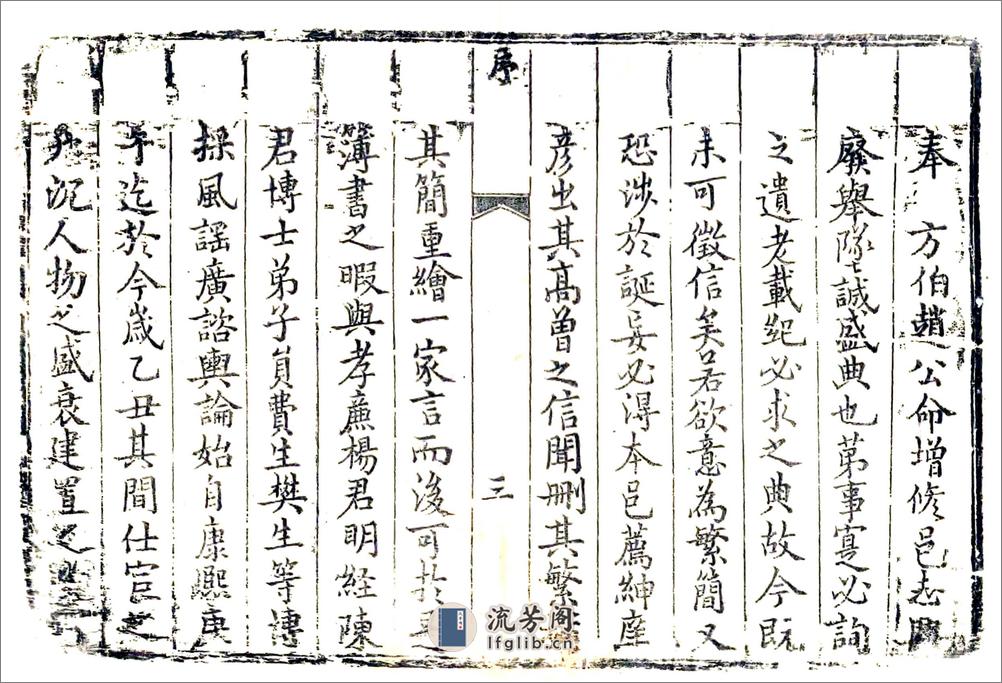 奉 方伯趙公命增修邑志興
廢舉墜誠盛典也苐事寔必詢
之遺老載紀必求之典故今既
未可徵信矣若欲意為繁簡又
恐涉於誕妄必淂本邑薦紳座
彦出其高曾之信聞刪其繁
序
三
其簡重繪一家言而後可於是
簿書之暇與孝廉楊君明経陳
君博士弟子員費生樊生等博
採風謡廣諮輿論始自康熙庚
午迄於今歲乙丑其間仕宦之
升沉人物之盛衰建置之
流芳阁
lfglib.cn